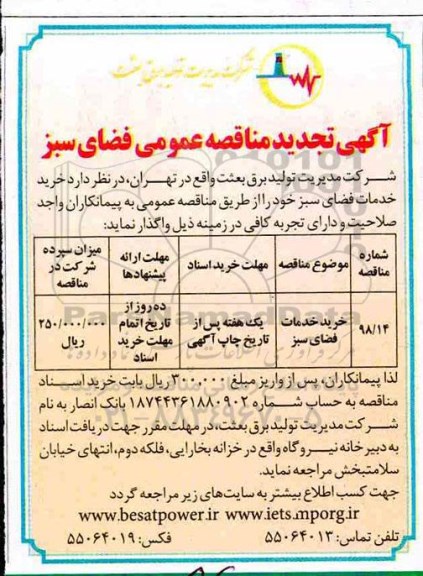 شرکت مدیریت تولید برق بعثت
آگهی تجدید مناقصه عمومی فضای سبز
شرکت مدیریت تولید برق بعثت واقع در تهران، در نظر دارد خرید
خدمات فضای سبز خود را از طریق مناقصه عمومی به پیمانکاران واجد
صلاحیت و دارای تجربه کافی در زمینه ذیل واگذار نماید:
شماره مناقصه	موضوع مناقصه	مهلت خرید اسناد	مهلت ارائه پیشنهادها	میزان سپرده شرکت در مناقصه
۹۸/۱۴	خرید خدمات فضای سبز	یک هفته پس از تاریخ چاپ آگهی	ده روز از تاریخ اتمام مهلت خرید اسناد	۲۵۰/۰۰۰/۰۰۰ ریال
لذا پیمانکاران، پس از واریز مبلغ ۳۰۰.۰۰۰ ریال بابت خرید اسناد
مناقصه به حساب شماره ۱۸۷۴۴۳۶۱۸۸۰۹۰۲ بانک انصار به نام
شرکت مدیریت تولید برق بعثت، در مهلت مقرر جهت دریافت اسناد
به دبیرخانه نیروگاه واقع در خزانه بخارایی، فلکه دوم، انتهای خیابان
سلامتبخش مراجعه نماید.
جهت کسب اطلاع بیشتر به سایت‌های زیر مراجعه گردد
www.besatpower.ir www.iets.mporg.ir
تلفن تماس: ۵۵۰۶۴۰۱۳ فکس: ۵۵۰۶۴۰۱۹
ParsNamadData
۰۲۱-۸۸۳۴۹۶۷۰-۵